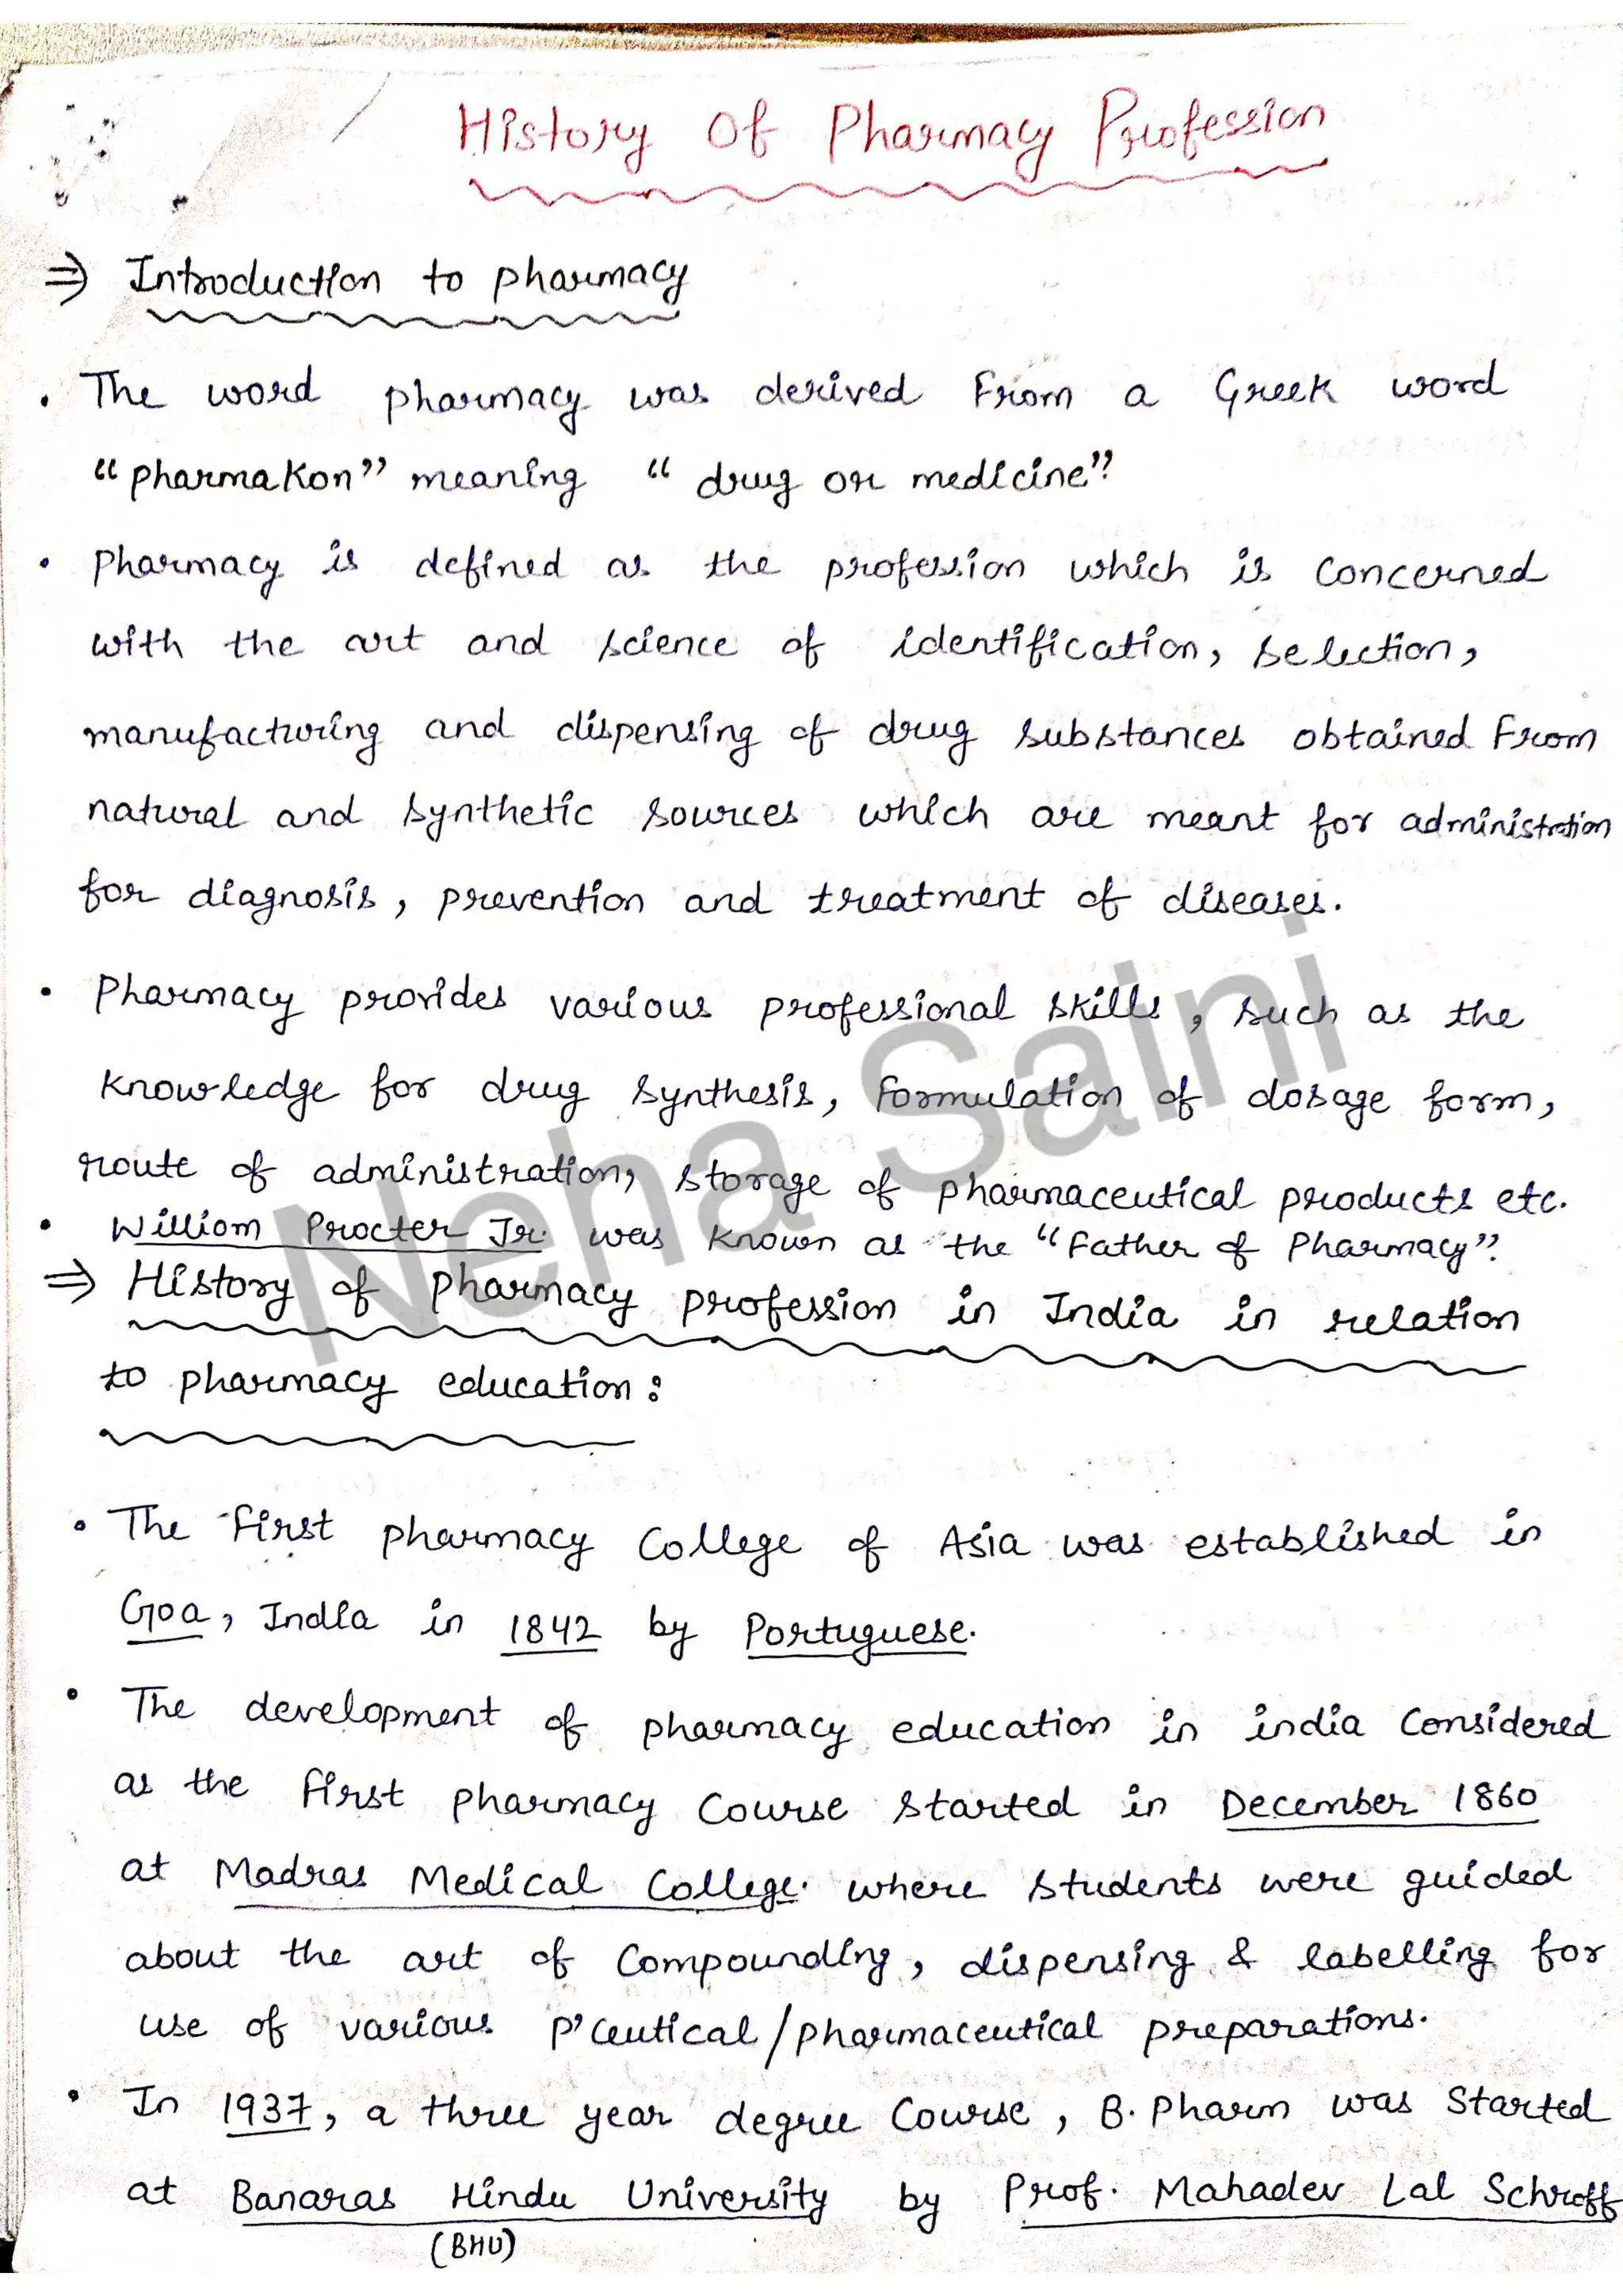 History Of Pharmacy Profession
⇒ Introduction to pharmacy
• The word pharmacy was derived From a Greek word
"pharmakon" meaning "drug or medicine"
• Pharmacy is defined as the profession which is concerned
with the art and science of identification, selection,
manufacturing and dispensing of drug substances obtained From
natural and synthetic sources which are meant for administration
for diagnosis, prevention and treatment of diseases.
• Pharmacy provides various professional skills, such as the
knowledge for drug synthesis, Formulation of dosage form,
route of administration, storage of pharmaceutical products etc.
• William Procter Jr. was known as the "Father of Pharmacy"
⇒ History of pharmacy profession in India in relation
to pharmacy education:
• The First pharmacy College of Asia was established in
Goa, India in 1842 by Portuguese.
• The development of pharmacy education in india Considered
as the First pharmacy Course started in December 1860
at Madras Medical College. where students were guided
about the art of Compounding, dispensing & labelling for
use of various p'ceutical/pharmaceutical preparations.
• In 1937, a three year degree Course, B. Pharm was Started
at Banaras Hindu University by Prof. Mahadev Lal Schroff
(BHU)
Neha Saini